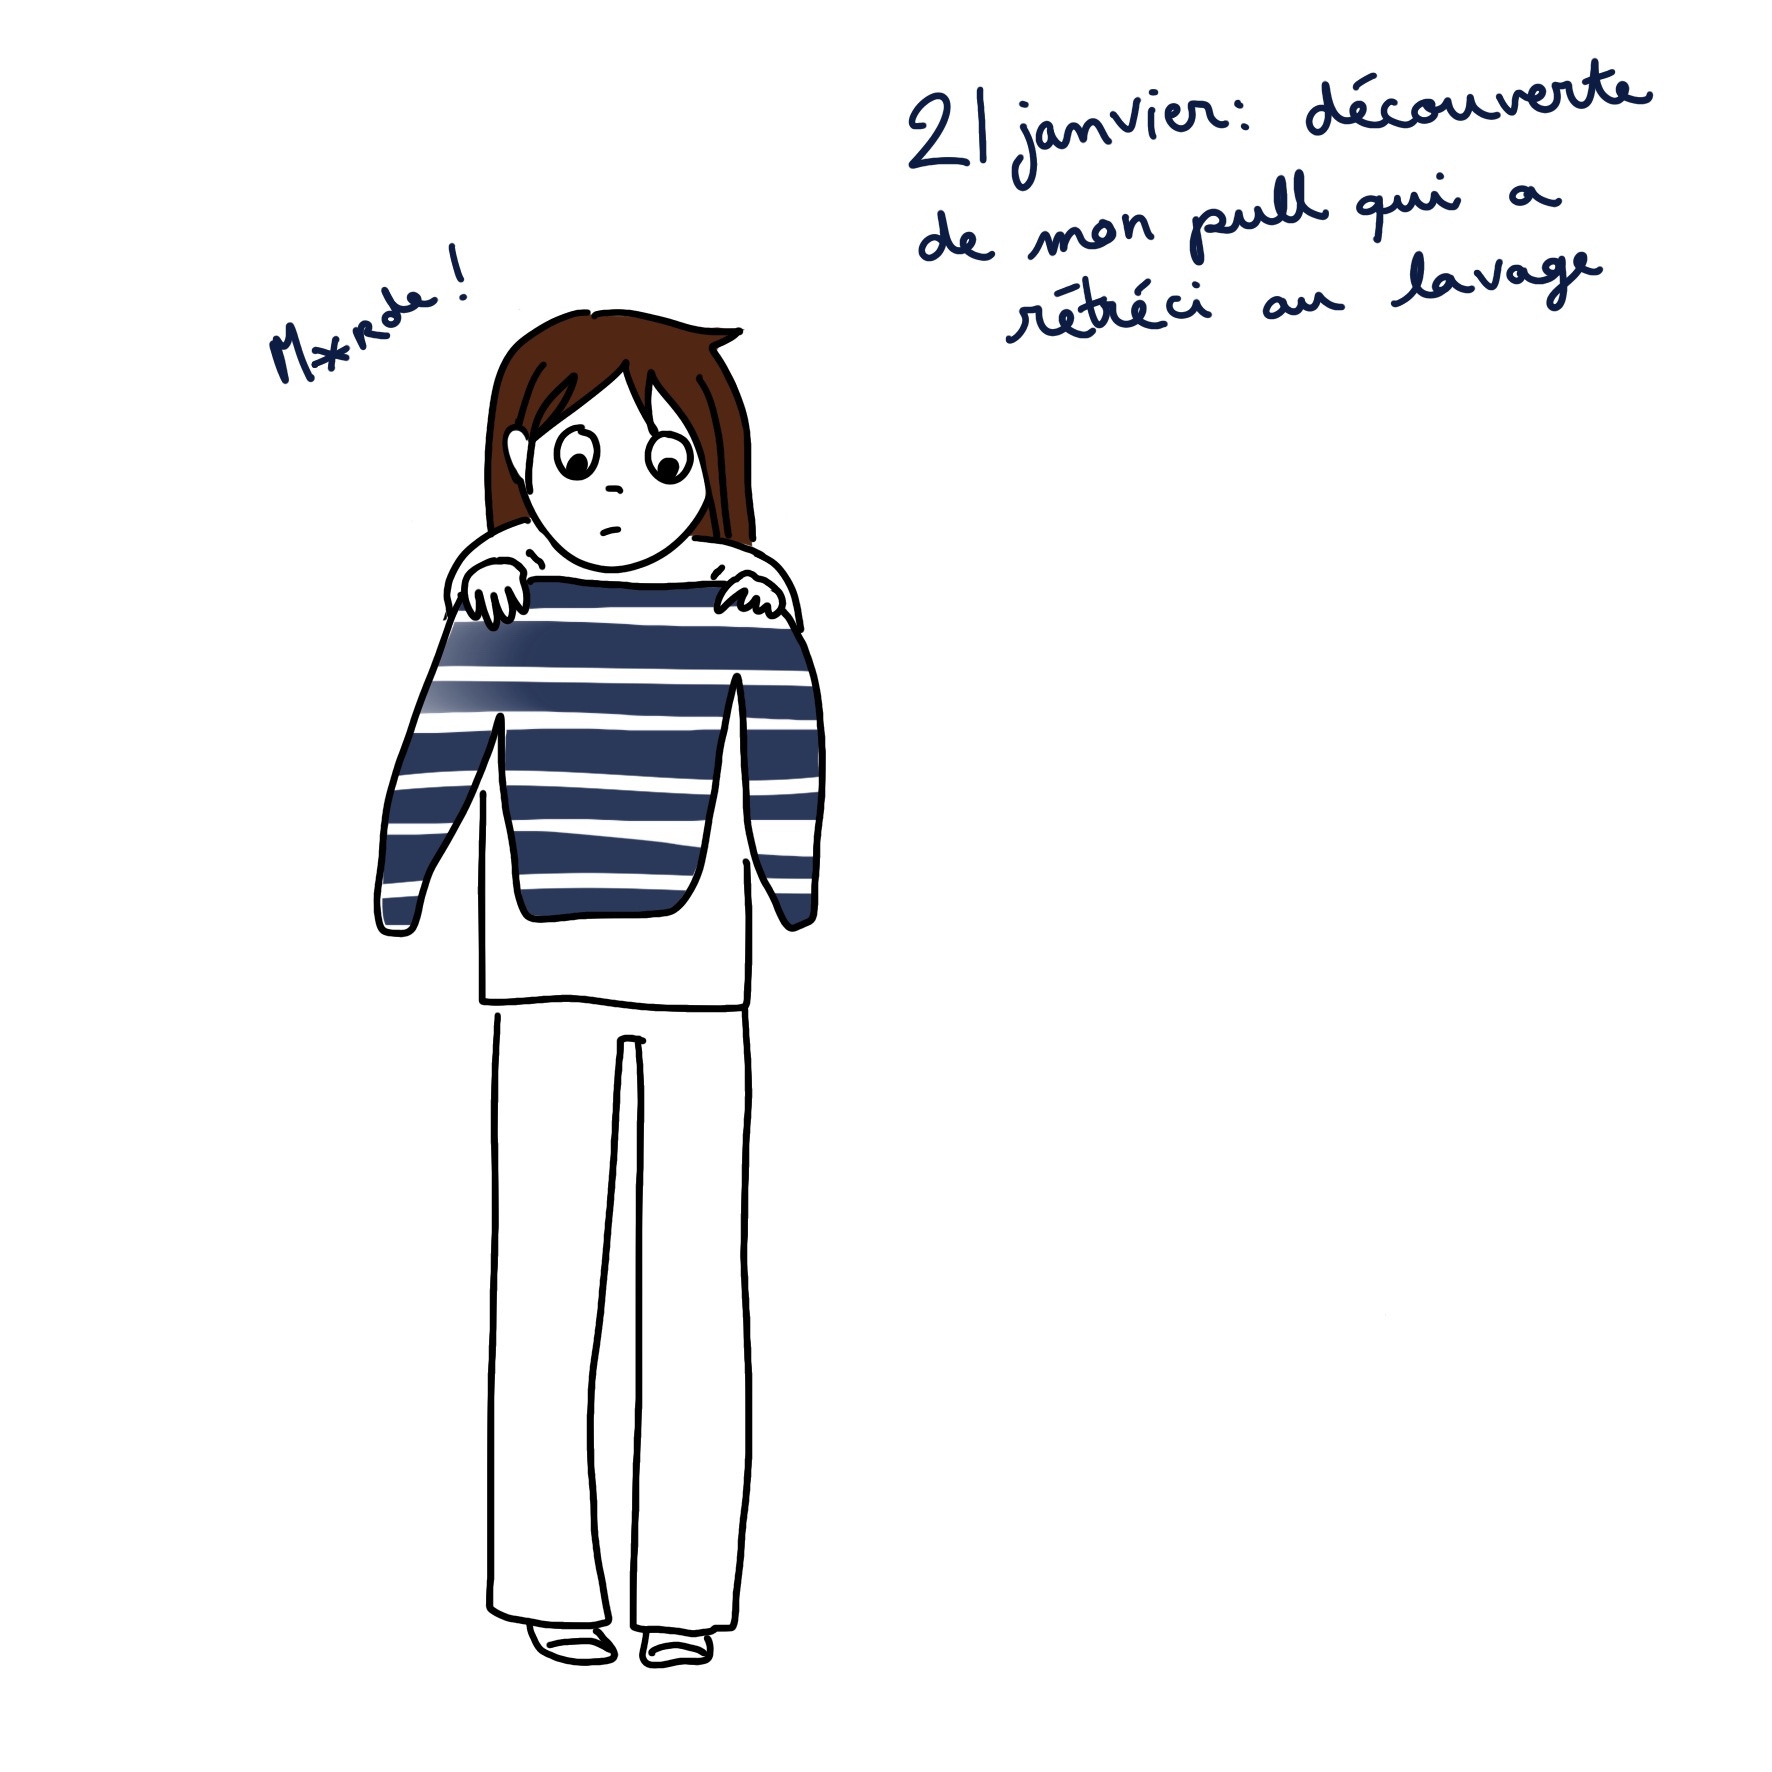 21 janvier: découverte
de mon pull qui a
rétréci au lavage
M*rde!